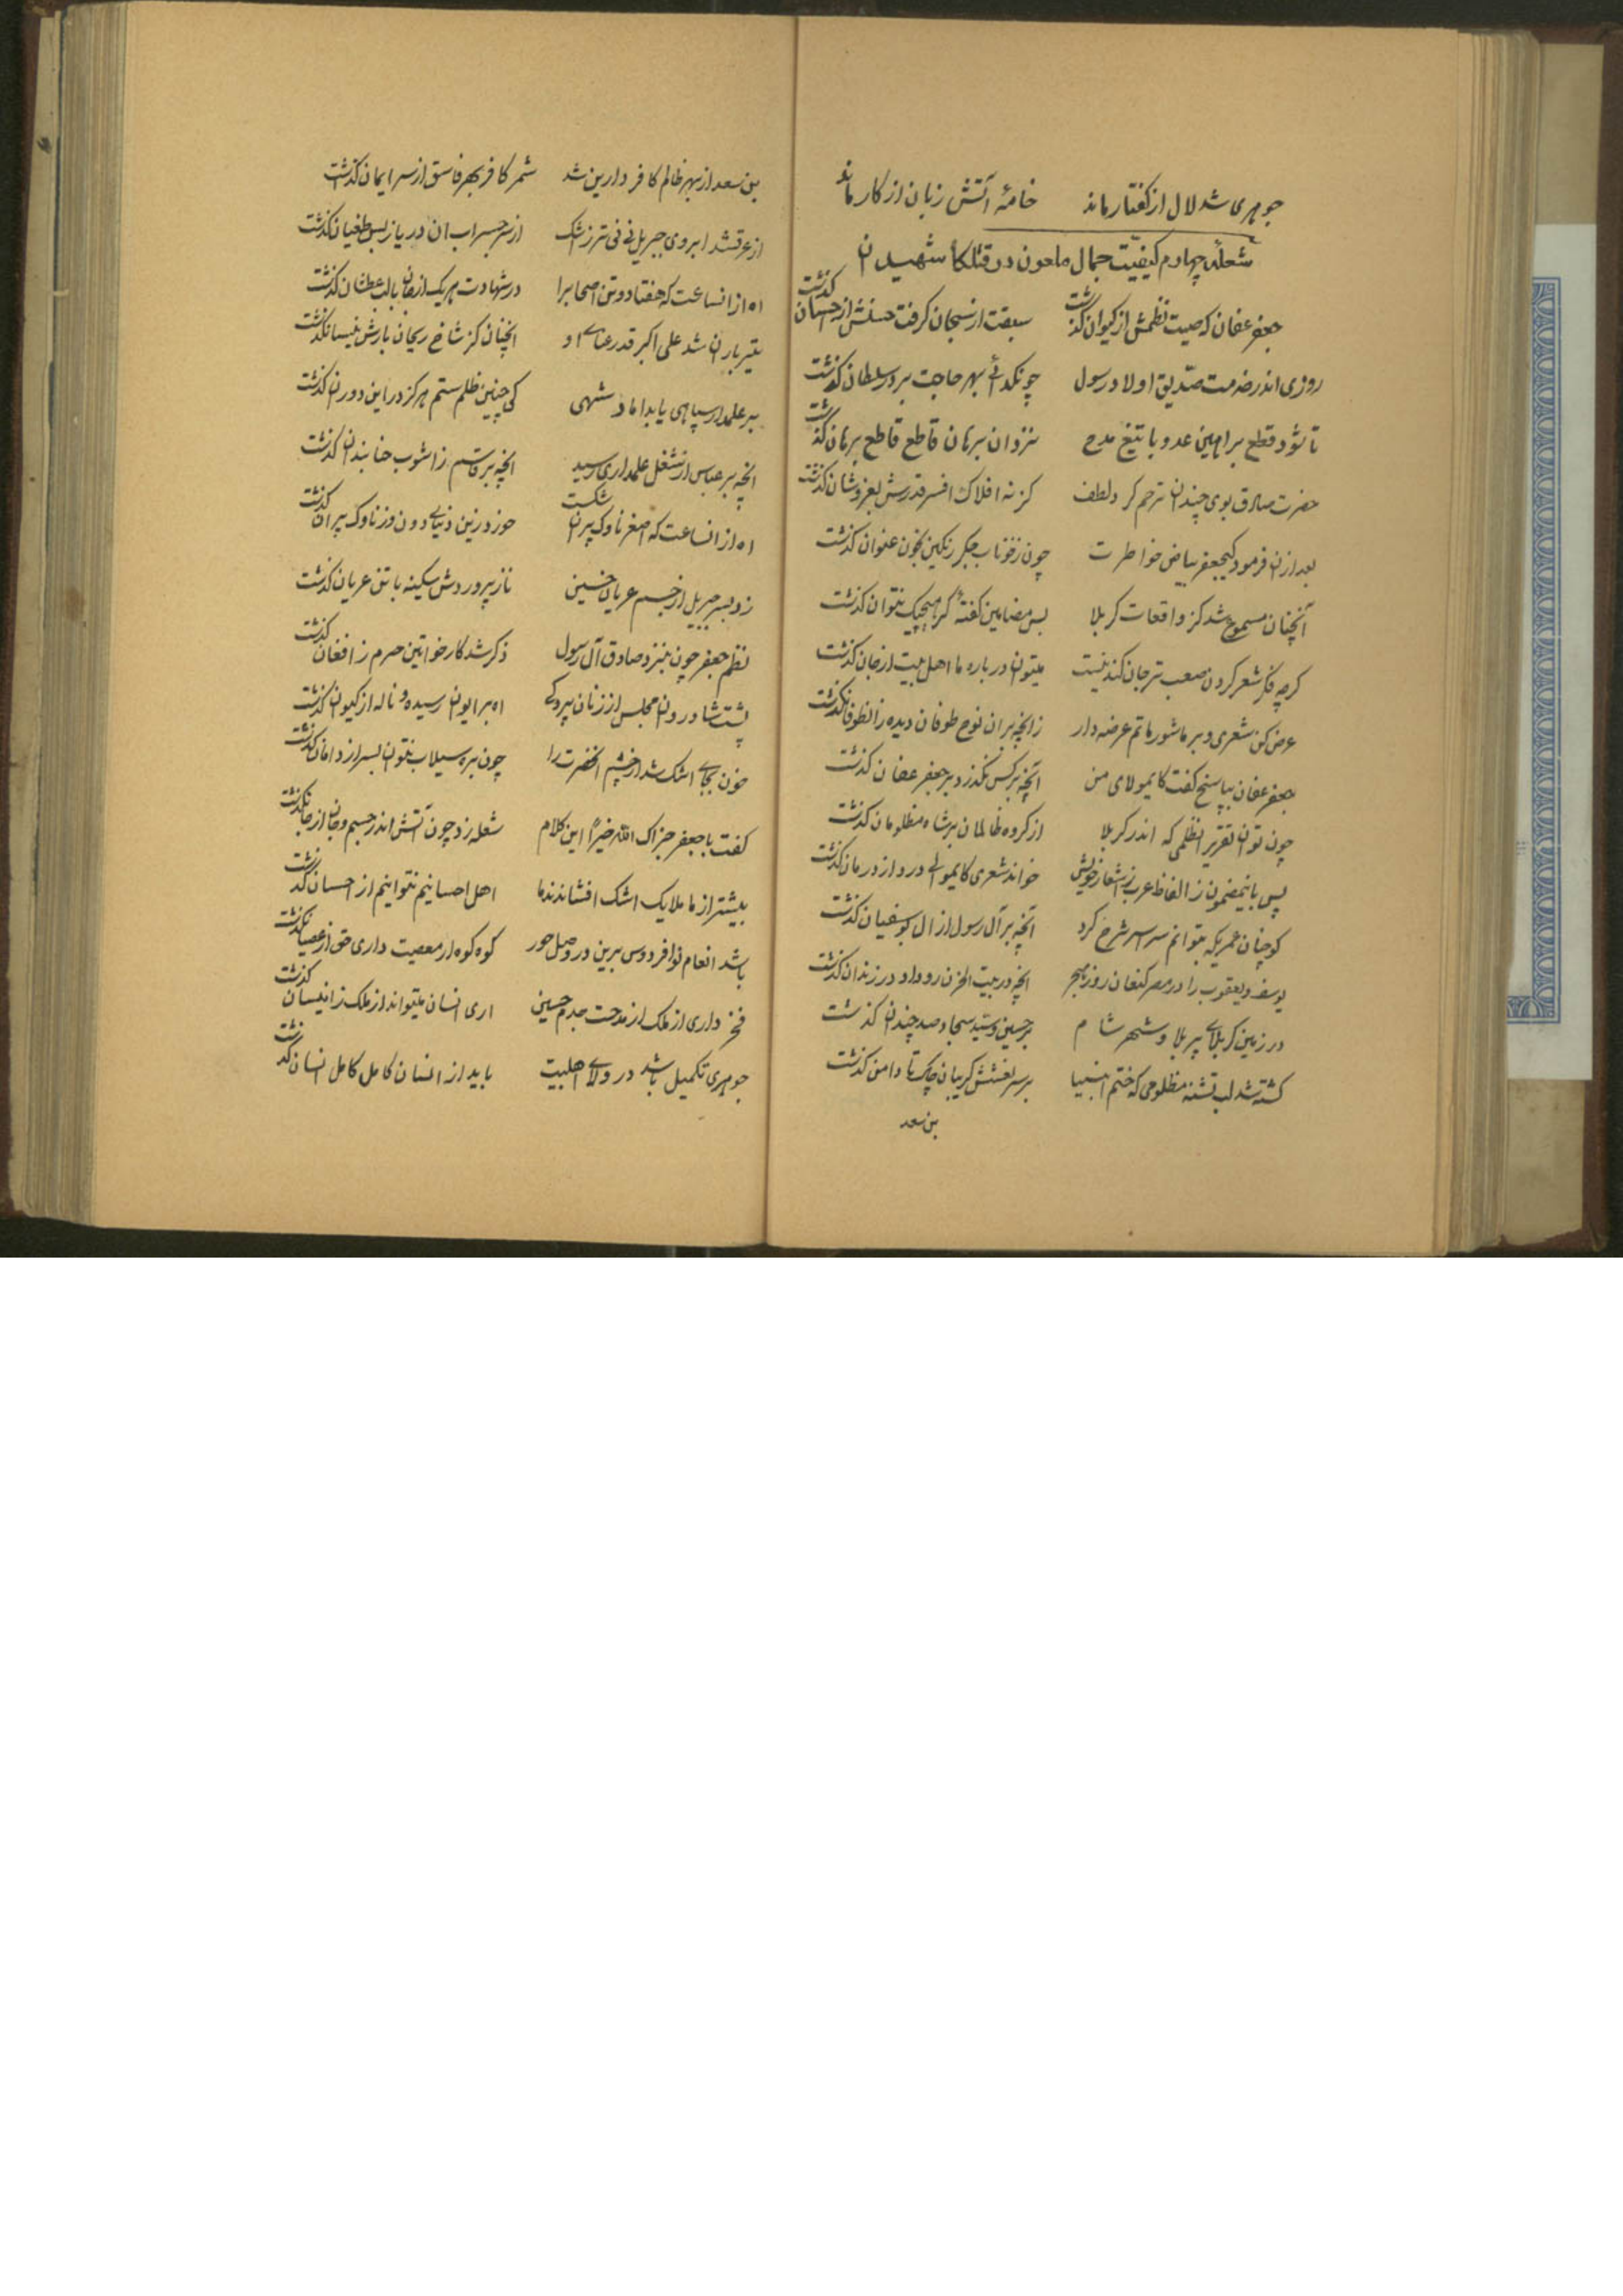 جوهری شد لال از کفتار ماند خامه آتش زبان از کار ماند
شعله چهارم کیفیت جمال ملعون در قتلکاه شهیدان
جعفر عفان که صیت نظمش از کیوان کذشت سبقت از سحبان کرفت حسنش از حسان کذشت
روزی اندر خدمت صدیق اولاد رسول چون کدائی بهر حاجت بر در سلطان کذشت
تا شود قطع براهین عدو با تیغ مدح نزد ان برهان قاطع قاطع برهان کذشت
حضرت صادق بوی چندان ترحم کرد و لطف کز نه افلاک افسر قدرش بعز و شان کذشت
بعد ازان فرمود کیجعفر بیاض خواطرت چون ز خوناب جکر رنکین بخون عنوان کذشت
آنچنان مسموع شد کز واقعات کربلا بس مضامین کفتهٔ کز هیچیک نتوان کذشت
کرچه فکر شعر کردن صعب تر جان کند نیست میتوان درباره ما اهل بیت از جان کذشت
عرض کن شعری و بر ما شور ماتم عرضه دار زانچه بر ان نوح طوفان دیده زانطوفان کذشت
جعفر عفان بپاسخ کفت کایمولای من آنچه بر کس نکذرد بر جعفر عفان کذشت
چون توان تقریر نظمی که اندر کربلا از کروه ظالمان بر شاه مظلومان کذشت
پس باینمضمون ز الفاظ عرب ز اشعار خویش خواند شعری کایمولای درد از درمان کذشت
کو چنان عمریکه بتوانم سراسر شرح کرد آنچه بر آل رسول از ال بوسفیان کذشت
یوسف و یعقوب را در مصر و کنعان روز هجر انچه در بیت الحزن رو داد و در زندان کذشت
در زمین کربلای پر بلا و شهر شام بر حسین و سید سجاد صد چندان کذشت
کشته شد لب تشنه مظلومی که ختم انبیا بر سر نعشش کریبان چاک تا دامن کذشت
بن سعد
بن سعد از بهر ظالم کافر دارین شد شمر کافر بهر فاسق از سر ایمان کذشت
از عرق شد ابروی جبریل نی نی تر ز اشک از سر جسر اب ان دریا ز بس طغیان کذشت
اه از انساعت که هفتاد و تن اصحاب را در شهادت هریک از جان با لب عطشان کذشت
تیر باران شد علی اکبر قد رعنای او انچنان کز شاخ ریحان بارش نیسان کذشت
بر علمدار سپاهی یا بداماد شهی کی چنین ظلم ستم هرکز در این دوران کذشت
انچه بر عباس از شغل علمداری رسید انچه بر قاسم ز اشوب حنا بندان کذشت
اه از انساعت که اصغر ناوک پران شکست خورد زین دنیای دون وز ناوک پران کذشت
زد بسر جبریل از جسم عریان حسین ناز پروردش سکینه با تن عریان کذشت
نظم جعفر چون بنزد صادق آل رسول ذکر شد کار خواتین حرم ز افغان کذشت
پشت شادروان مجلس از زنان پردکی اه بر ایوان رسید و ناله از کیوان کذشت
خون بجای اشک شد از چشم انحضرت را چون بره سیلاب نتوان بسر از دامان کذشت
کفت با جعفر جزاک الله خیرًا این کلام شعله زد چون آتش اندر جسم و جان از جان کذشت
بیشتر از ما ملایک اشک افشاندند ما اهل احسانیم نتوانیم از احسان کذشت
باشد انعام تو افردوس برین در وصل حور کوه کوه ار معصیت داری حق از عصیان کذشت
فخر داری از ملک از مدحت جدم حسین اری انسان میتواند از ملک زانیسان کذشت
جوهری تکمیل باشد در ولای اهلبیت باید از انسان کامل کامل انسان کذشت